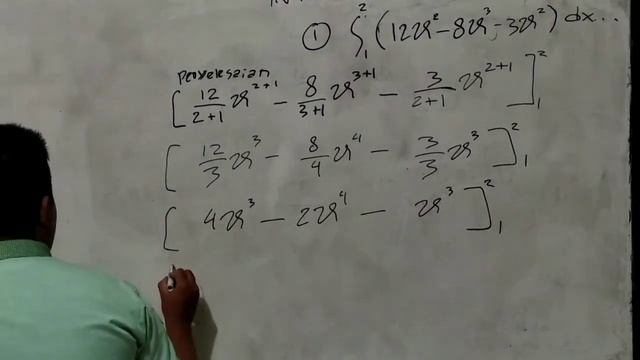 ① ∫₁² (12x² – 8x³ – 3x²) dx...
Penyelesaian
[ 12/2+1 x²⁺¹ – 8/3+1 x³⁺¹ – 3/2+1 x²⁺¹ ]₁²
[ 12/3 x³ – 8/4 x⁴ – 3/3 x³ ]₁²
[ 4x³ – 2x⁴ – x³ ]₁²